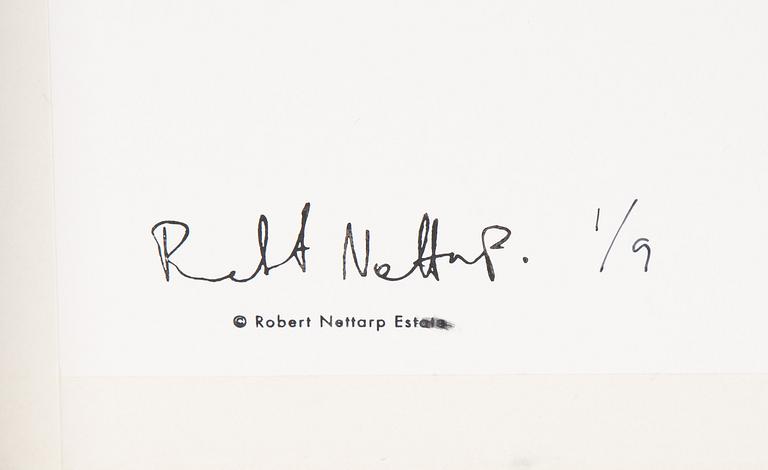 Robert Nettarp. 1/9
© Robert Nettarp Estate